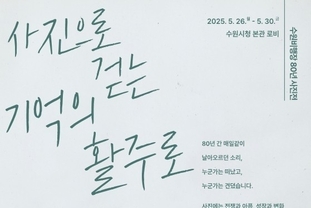 사진으로
걷는
기억의
활주로
2025. 5. 26.월 - 5. 30.금
수원시청 본관 로비
수원비행장 80년 사진전
80년 간 매일같이
날아오르던 소리,
누군가는 떠났고,
누군가는 견뎠습니다.
사진에는 전쟁과 아픔, 성장과 변화